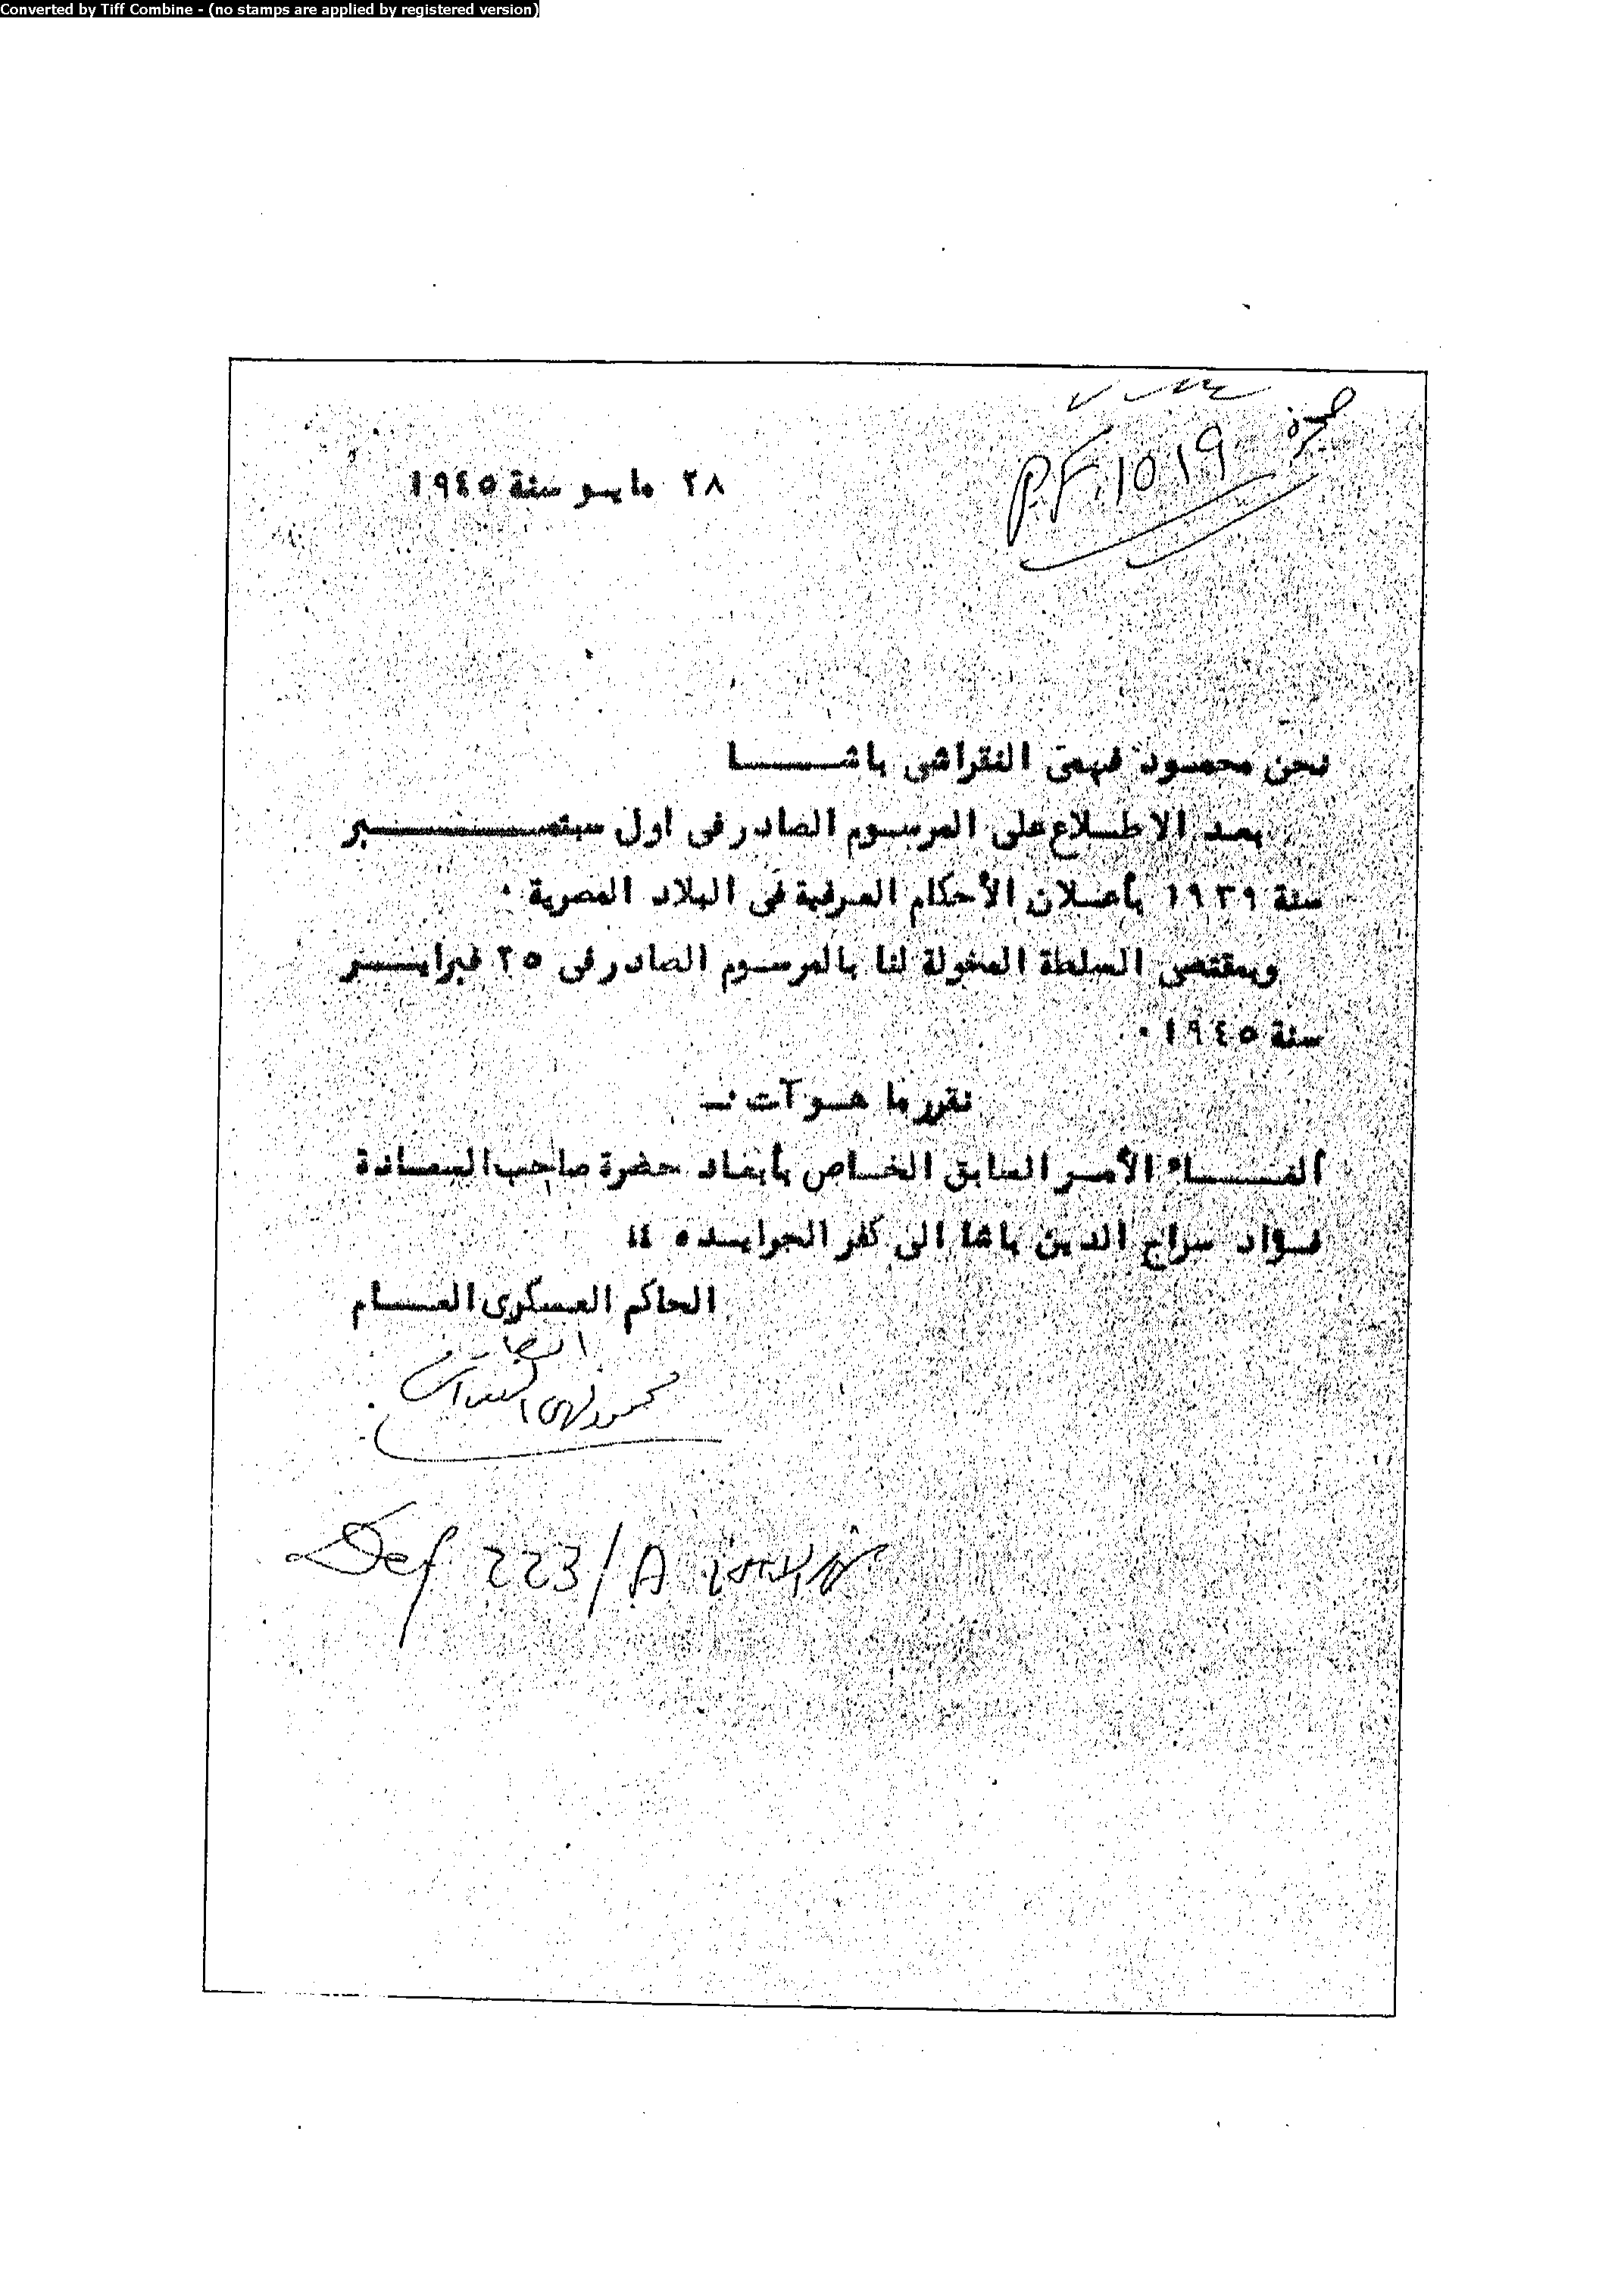 Converted by Tiff Combine - (no stamps are applied by registered version)
P.F. 1019
٢٨ مايو سنة ١٩٤٥
نحن محمود فهمى النقراشى باشـــــا
بعد الاطلاع على المرسوم الصادر فى اول سبتمـــــــــبر
سنة ١٩٣٩ بأعلان الأحكام العرفية فى البلاد المصرية ٠
وبمقتضى السلطة المخولة لنا بالمرسوم الصادر فى ٢٥ فبرايـــر
سنة ١٩٤٥ ٠
نقرر ما هو آت :ــ
الغـــــاء الأمر السابق الخاص بأبعاد حضرة صاحب السعادة
فؤاد سراج الدين باشا الى كفر الجرايده ٤٤
الحاكم العسكرى العـــام
محمود فهمى النقراشى
Def 223/A